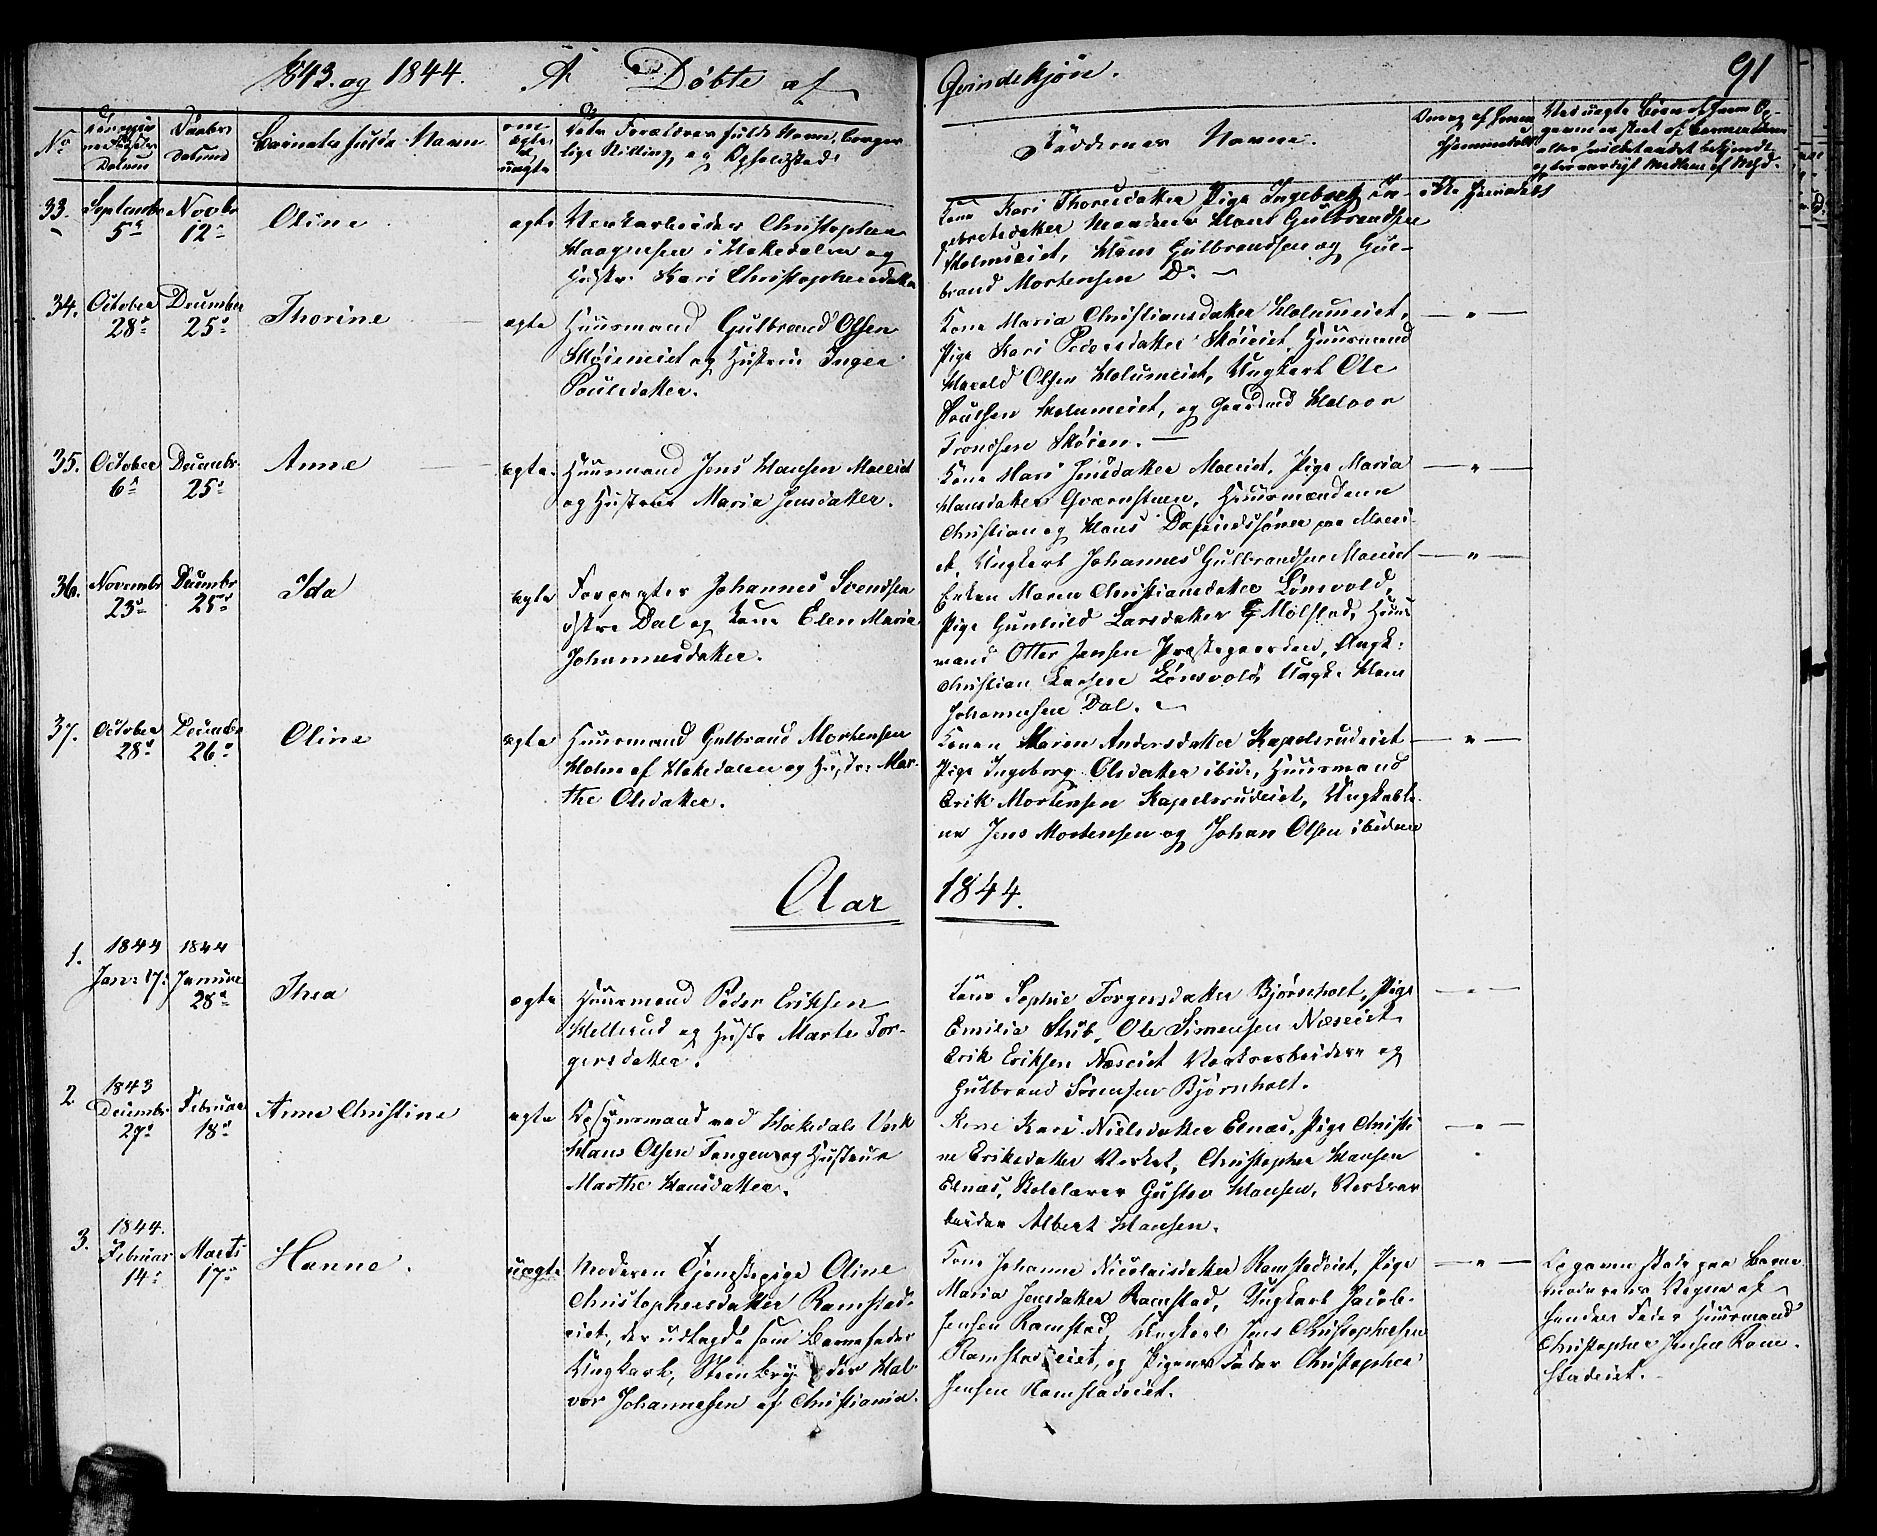 1843. og 1844. A. Døbte af Qvindekjøn. 91
No Datum Daabens Datum Barnets fulde Navn om ægte ell. uægte Dets Forældres fulde Navn, borgerlige Stilling og Opholdssted
Faddernes Navne
33. Septembr 5te Novbr 12te Oline ægte Verksarbeider Christopher
Haagensen i Hakedalen og
Hustr. Kari Christophersdatter
Kone Kari Thoresdatter Pige Ingeborg In-
gebretsdatter Mændene Hans Gulbrandsen
Holmseiet, Hans Gulbrandsen og Gul-
brand Mortensen Do
34. October 28de December 25de Thorine ægte Huusmand Gulbrand Olsen
Skøieneiet og Hustrue Inger
Poulsdatter.
Kone Maria Christiansdatter Holumeiet,
Pige Kari Pedersdatter Skøieiet, Huusmand
Harald Olsen Holumeiet, Ungkarl Ole
Poulsen Holumeiet, og Gaardmd Halvor
Trondsen Skøien.
35. October 6te Decembr. 25de Anne ægte. Huusmand Jens Hansen Moeeiet
og Hustrue Maria Jensdatter.
Kone Mari Jensdatter Moeeiet, Pige Maria
Hansdatter Qværnstuen, Huusmændene
Christian og Hans Dafindssøner paa Moeei-
et, Ungkarl Johannes Gulbrandsen Moeeiet
36. Novembr 23de Decembr 25de Ida ægte Forpagter Johannes Svendsen
østre Dal og Kone Elen Maria
Johannesdatter.
Enken Maren Christiansdatter Lønsvold,
Pige Gunhild Larsdatter Mølstad, Huus-
mand Otter Jansen Præstegaarden, Ungk:
Christian Larsen Lønsvold, Ungk: Hans
Johannesen Dal.
37. October 28de December 26de Oline ægte Huusmand Gulbrand Mortensen
Holm af Hakedalen og Hustr. Mar-
the Olsdatter.
Konen Maren Andersdatter Kapelsrudeiet
Pige Ingeborg Olsdatter ibid., Huusmand
Erik Mortensen Kapelsrudeiet, Ungkarle-
ne Jens Mortensen og Johan Olsen ibidem
Aar 1844.
1. 1844 Janr 17. 1844 Januar 28de Thea ægte Huusmand Peder Eriksen
Hellerud og Hustr. Marte Tor-
gersdatter.
Kone Sophie Torgersdatter Bjørnholt, Pige
Emilie Stub, Ole Simensen Næseiet
Erik Eriksen Næseiet Verksarbeidere og
Gulbrand Sørensen Bjørnholt.
2 1843 Decembr 27de Februar 18de Anne Christine ægte Opsynsmand ved Hakedals Verk
Hans Olsen Tangen og Hustrue
Marthe Hansdatter.
Kone Kari Nielsdatter Elnæs, Pige Christi-
ne Eriksdatter Verket, Christopher Hansen
Elnæs, Skolelærer Gustav Hansen, Verksar-
beider Albert Hansen.
3. 1844. Februar 14de Marts 17de Hanne. uægte Moderen Tjenestepige Oline
Christophersdatter Ramstad-
eiet, der udlagde som Barnefader
Ungkarl, Steenbryder Hal-
vor Johannesen af Christiania.
Kone Johanne Nicolaisdatter Ramstadeiet, Pige
Maria Jensdatter Ramstad, Ungkarl Jacob
Jensen Ramstad, Ungkarl Jens Christophersen
Ramstadeiet, og Pigens Fader Christopher
Jensen Ramstadeiet.
Opgaven skede paa Barne-
moderens Vegne af
hendes Fader Huusmand
Christopher Jensen Ram-
stadeiet.